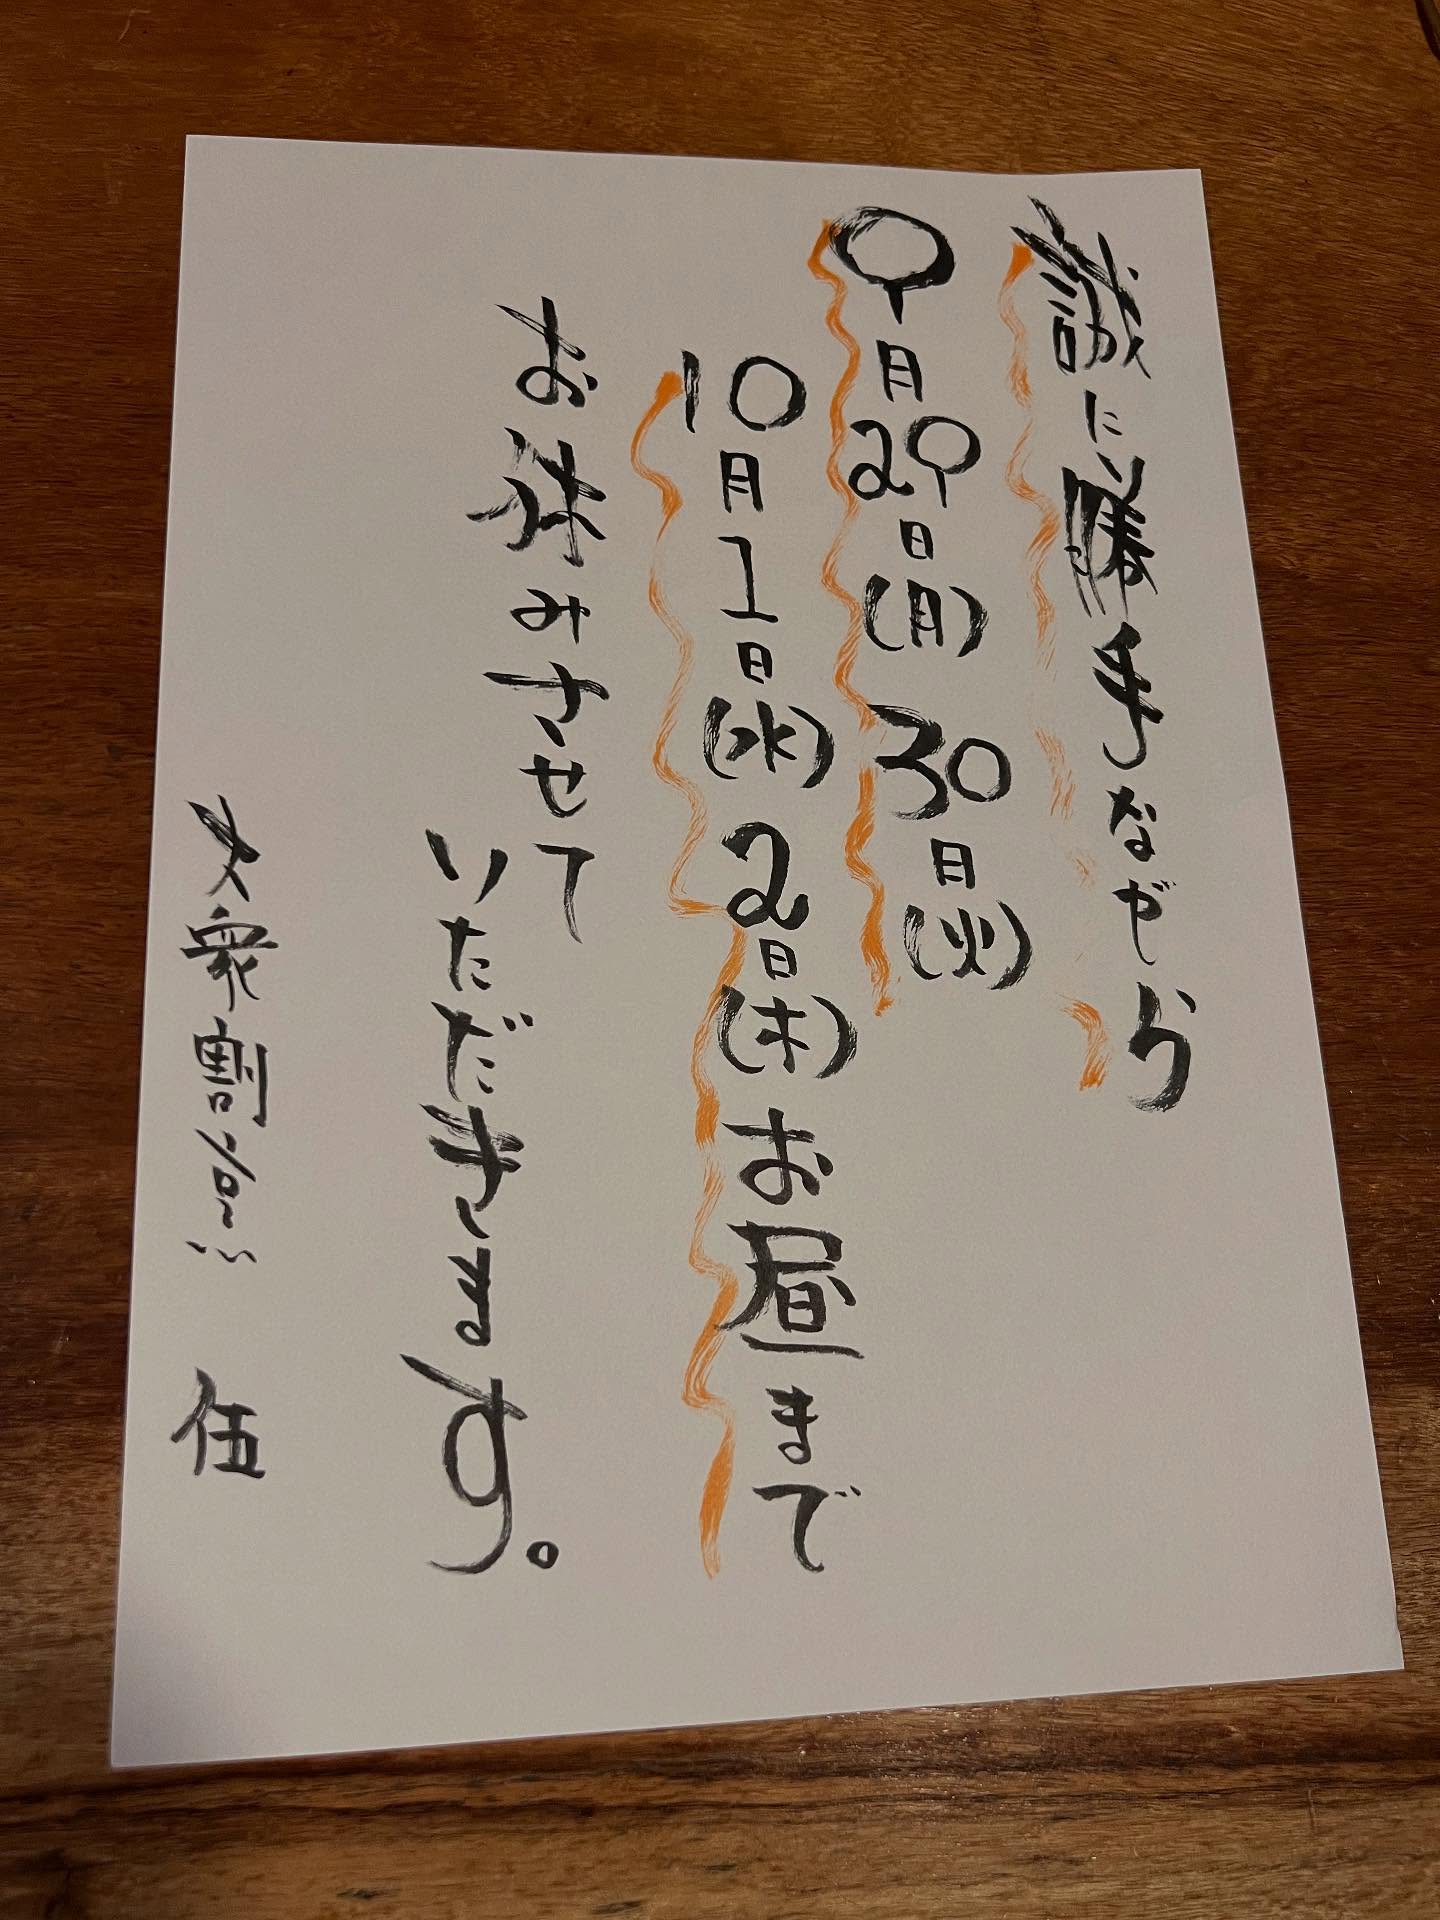 誠に勝手ながら
9月29日(月)30日(火)
10月1日(水)2日(木)お昼まで
お休みさせて
いただきます。
大衆割烹 伍